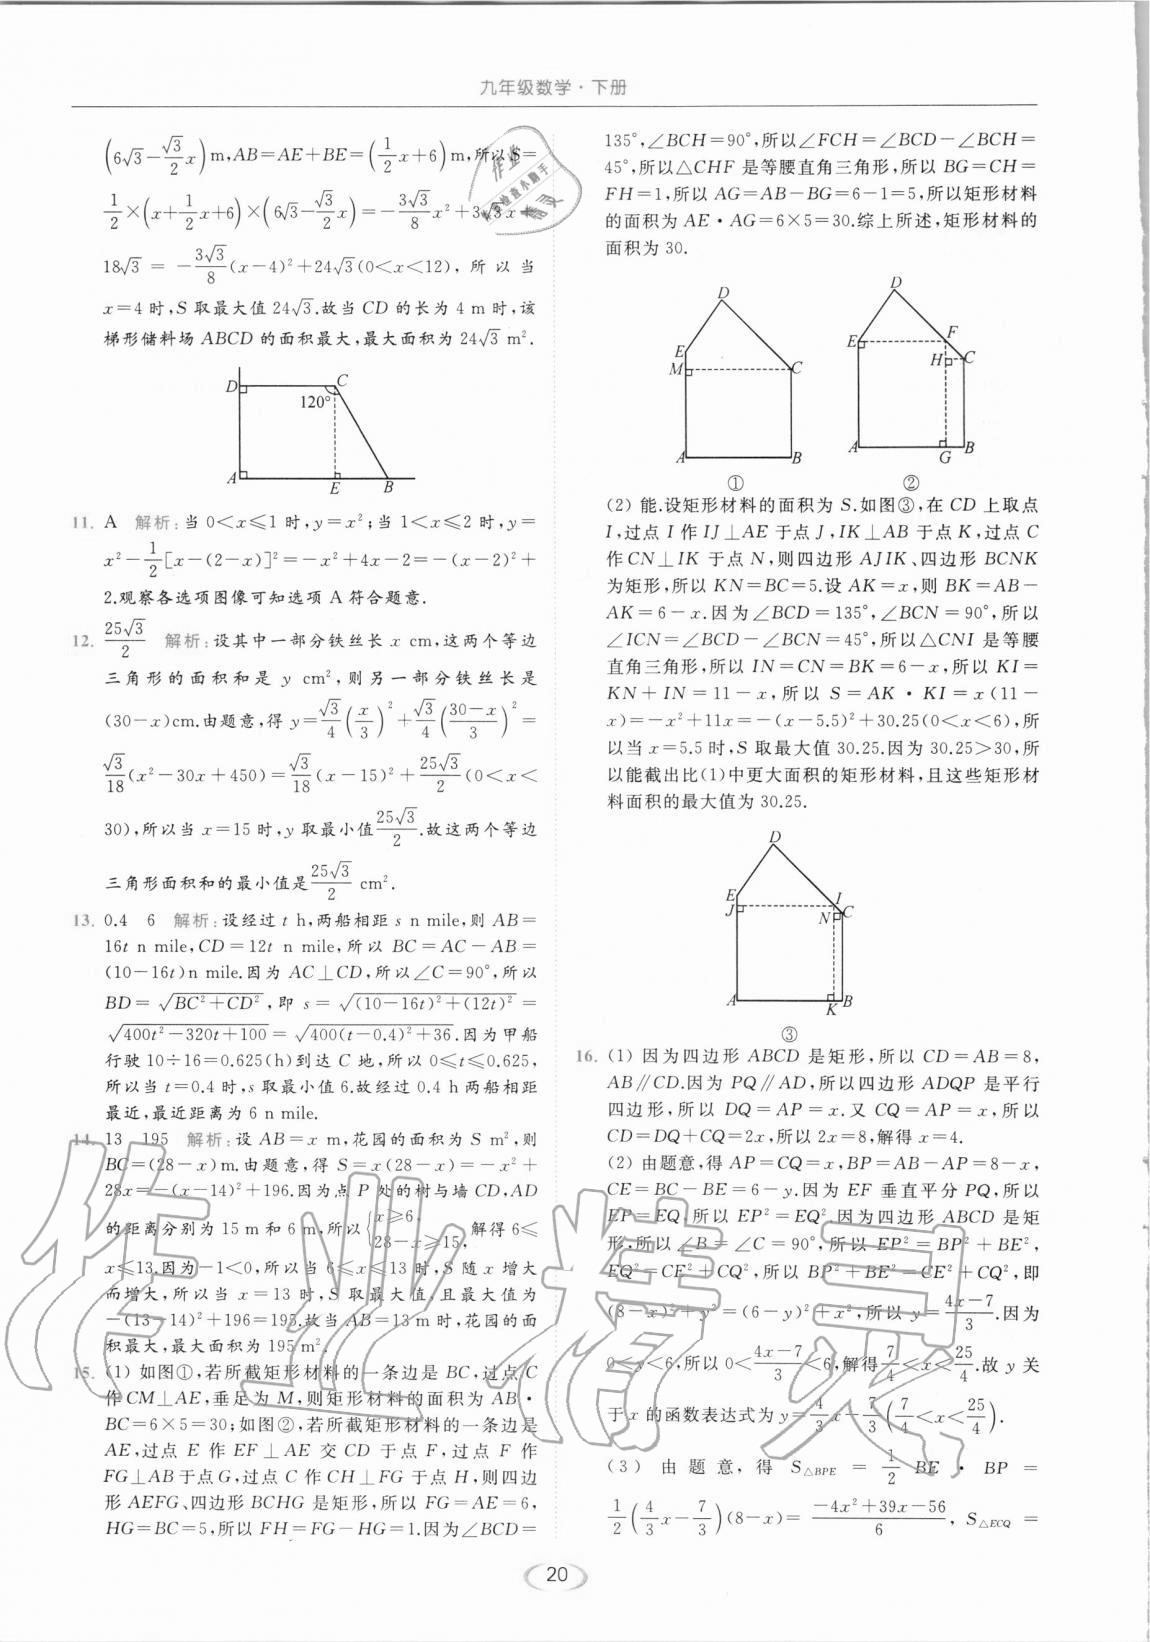 九年级数学·下册
(6√3-√3/2 x)m,AB=AE+BE=(1/2 x+6)m,所以 S=
1/2×(x+1/2 x+6)×(6√3-√3/2 x)=-3√3/8 x²+3√3x
18√3 = -3√3/8(x-4)²+24√3(0<x<12), 所以当
x=4时,S取最大值24√3.故当CD的长为4 m时,该
梯形储料场ABCD的面积最大,最大面积为24√3 m².
D C
120°
A E B
11. A 解析:当0<x≤1时,y=x²;当1<x≤2时,y=
x²-1/2[x-(2-x)]²=-x²+4x-2=-(x-2)²+
2.观察各选项图像可知选项A符合题意.
12. 25√3/2 解析:设其中一部分铁丝长x cm,这两个等边
三角形的面积和是y cm²,则另一部分铁丝长是
(30-x)cm.由题意,得y=√3/4(x/3)²+√3/4(30-x/3)²=
√3/18(x²-30x+450)=√3/18(x-15)²+25√3/2(0<x<
30),所以当x=15时,y取最小值25√3/2.故这两个等边
三角形面积和的最小值是25√3/2 cm².
13. 0.4 6 解析:设经过t h,两船相距s n mile,则AB=
16t n mile,CD=12t n mile,所以BC=AC-AB=
(10-16t)n mile.因为AC⊥CD,所以∠C=90°,所以
BD=√(BC²+CD²),即s=√((10-16t)²+(12t)²)=
√(400t²-320t+100)=√(400(t-0.4)²+36).因为甲船
行驶10÷16=0.625(h)到达C地,所以0≤t≤0.625,
所以当t=0.4时,s取最小值6.故经过0.4 h两船相距
最近,最近距离为6 n mile.
14. 13 195 解析:设AB=x m,花园的面积为S m²,则
BC=(28-x)m.由题意,得S=x(28-x)=-x²+
28x=-(x-14)²+196.因为点P处的树与墙CD,AD
的距离分别为15 m和6 m,所以{x≥6, 28-x≥15, 解得6≤
x≤13.因为-1<0,所以当6≤x≤13时,S随x增大
而增大,所以当x=13时,S取最大值,且最大值为
-(13-14)²+196=195.故当AB=13 m时,花园的面
积最大,最大面积为195 m².
15. (1) 如图①,若所截矩形材料的一条边是BC,过点C
作CM⊥AE,垂足为M,则矩形材料的面积为AB·
BC=6×5=30;如图②,若所截矩形材料的一条边是
AE,过点E作EF⊥AE交CD于点F,过点F作
FG⊥AB于点G,过点C作CH⊥FG于点H,则四边
形AEFG、四边形BCHG是矩形,所以FG=AE=6,
HG=BC=5,所以FH=FG-HG=1.因为∠BCD=
135°,∠BCH=90°,所以∠FCH=∠BCD-∠BCH=
45°,所以△CHF是等腰直角三角形,所以BG=CH=
FH=1,所以AG=AB-BG=6-1=5,所以矩形材料
的面积为AE·AG=6×5=30.综上所述,矩形材料的
面积为30.
D E M C A B
①
D E F H C A G B
②
(2) 能.设矩形材料的面积为S.如图③,在CD上取点
I,过点I作IJ⊥AE于点J,IK⊥AB于点K,过点C
作CN⊥IK于点N,则四边形AJIK、四边形BCNK
为矩形,所以KN=BC=5.设AK=x,则BK=AB-
AK=6-x.因为∠BCD=135°,∠BCN=90°,所以
∠ICN=∠BCD-∠BCN=45°,所以△CNI是等腰
直角三角形,所以IN=CN=BK=6-x,所以KI=
KN+IN=11-x,所以S=AK·KI=x(11-
x)=-x²+11x=-(x-5.5)²+30.25(0<x<6),所
以当x=5.5时,S取最大值30.25.因为30.25>30,所
以能截出比(1)中更大面积的矩形材料,且这些矩形材
料面积的最大值为30.25.
D E J I N C A K B
③
16. (1) 因为四边形ABCD是矩形,所以CD=AB=8,
AB∥CD.因为PQ∥AD,所以四边形ADQP是平行
四边形,所以DQ=AP=x.又CQ=AP=x,所以
CD=DQ+CQ=2x,所以2x=8,解得x=4.
(2) 由题意,得AP=CQ=x,BP=AB-AP=8-x,
CE=BC-BE=6-y.因为EF垂直平分PQ,所以
EP=EQ,所以EP²=EQ².因为四边形ABCD是矩
形,所以∠B=∠C=90°,所以EP²=BP²+BE²,
EQ²=CE²+CQ²,所以BP²+BE²=CE²+CQ²,即
(8-x)²+y²=(6-y)²+x²,所以y=4x-7/3.因为
0<y<6,所以0<4x-7/3<6,解得7/4<x<25/4.故y关
于x的函数表达式为y=4/3 x-7/3(7/4<x<25/4).
(3) 由题意,得S△BPE = 1/2 BE·BP =
1/2(4/3 x-7/3)(8-x)=-4x²+39x-56/6, S△ECQ =
20
作业精灵